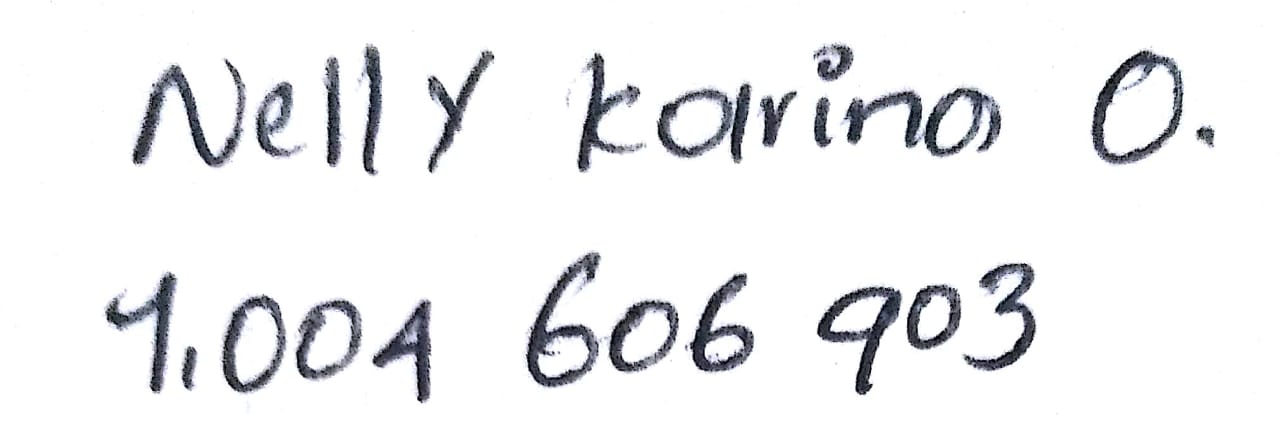 Nelly Karina O.
1.004 606 903